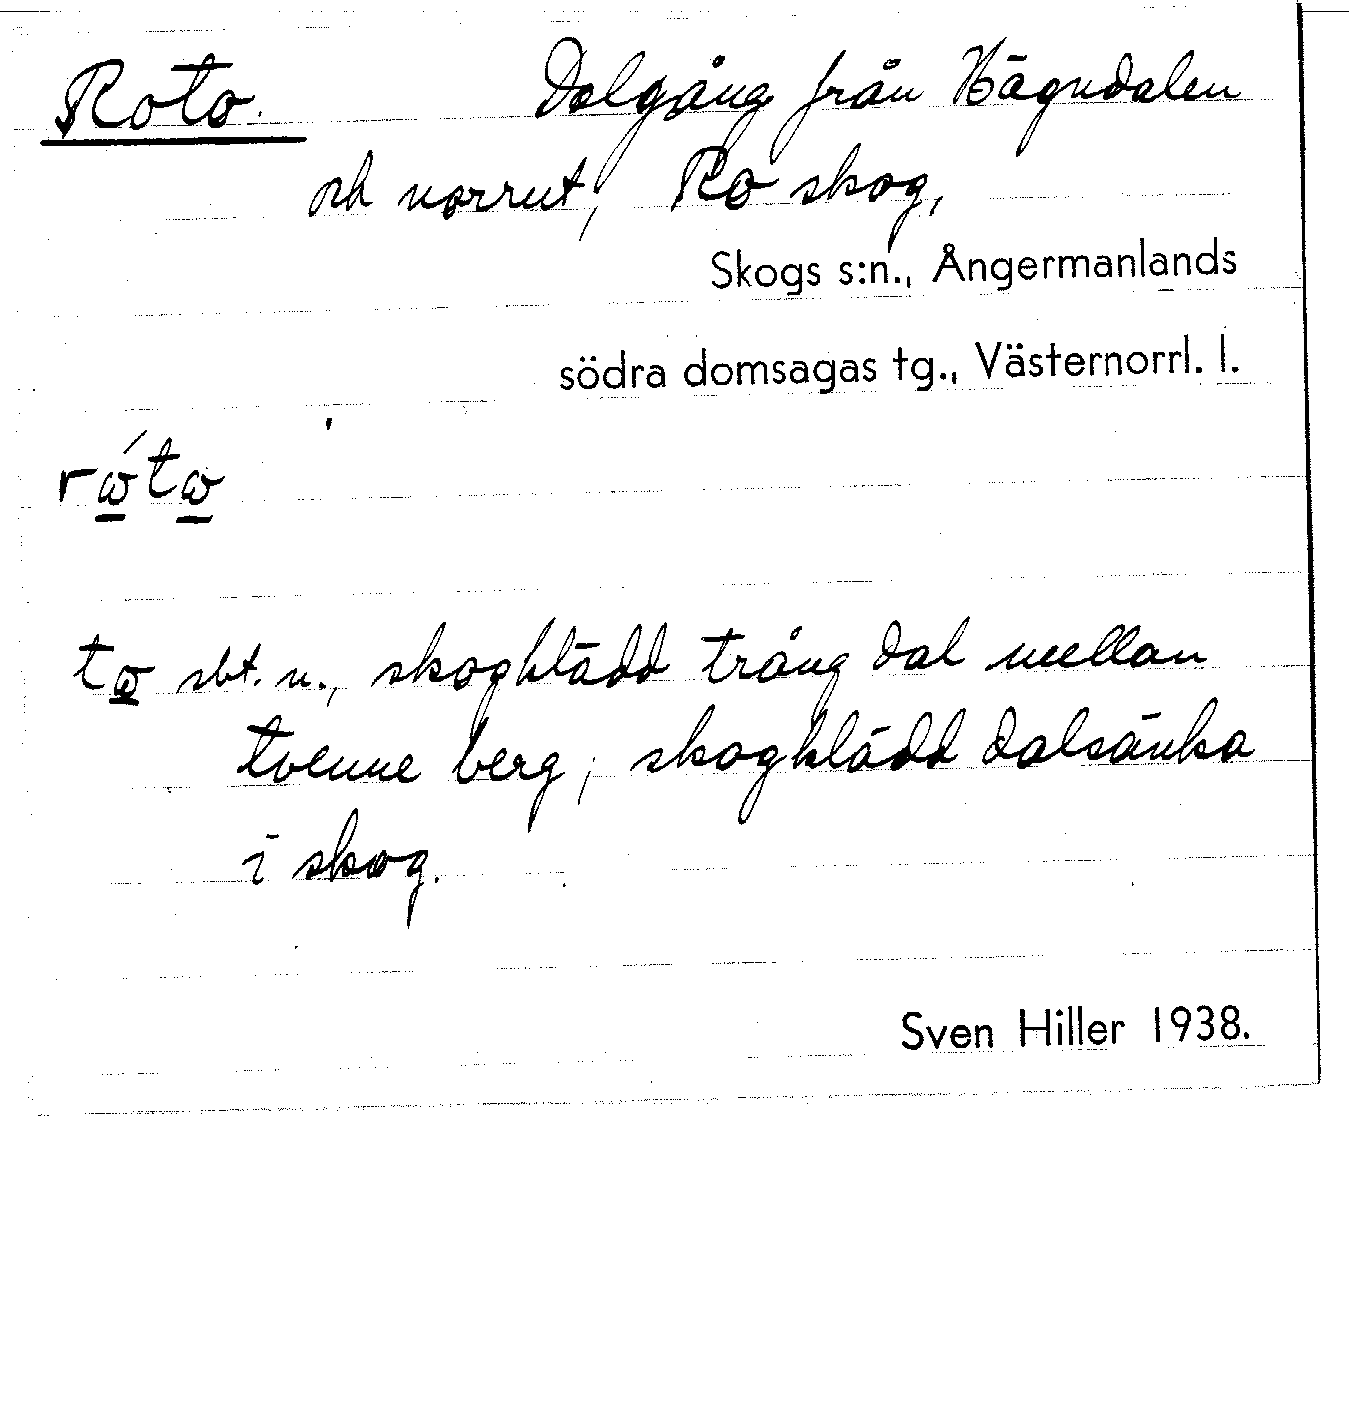 Roto. Dalgång från Hägndalen
och norrut, Ro skog,
Skogs s:n., Ångermanlands
södra domsagas tg., Västernorrl. l.
rώ̲tω̲
tω̲ sbt. n., skogklädd trång dal mellan
tvenne berg; skogklädd dalsänka
i skog.
Sven Hiller 1938.